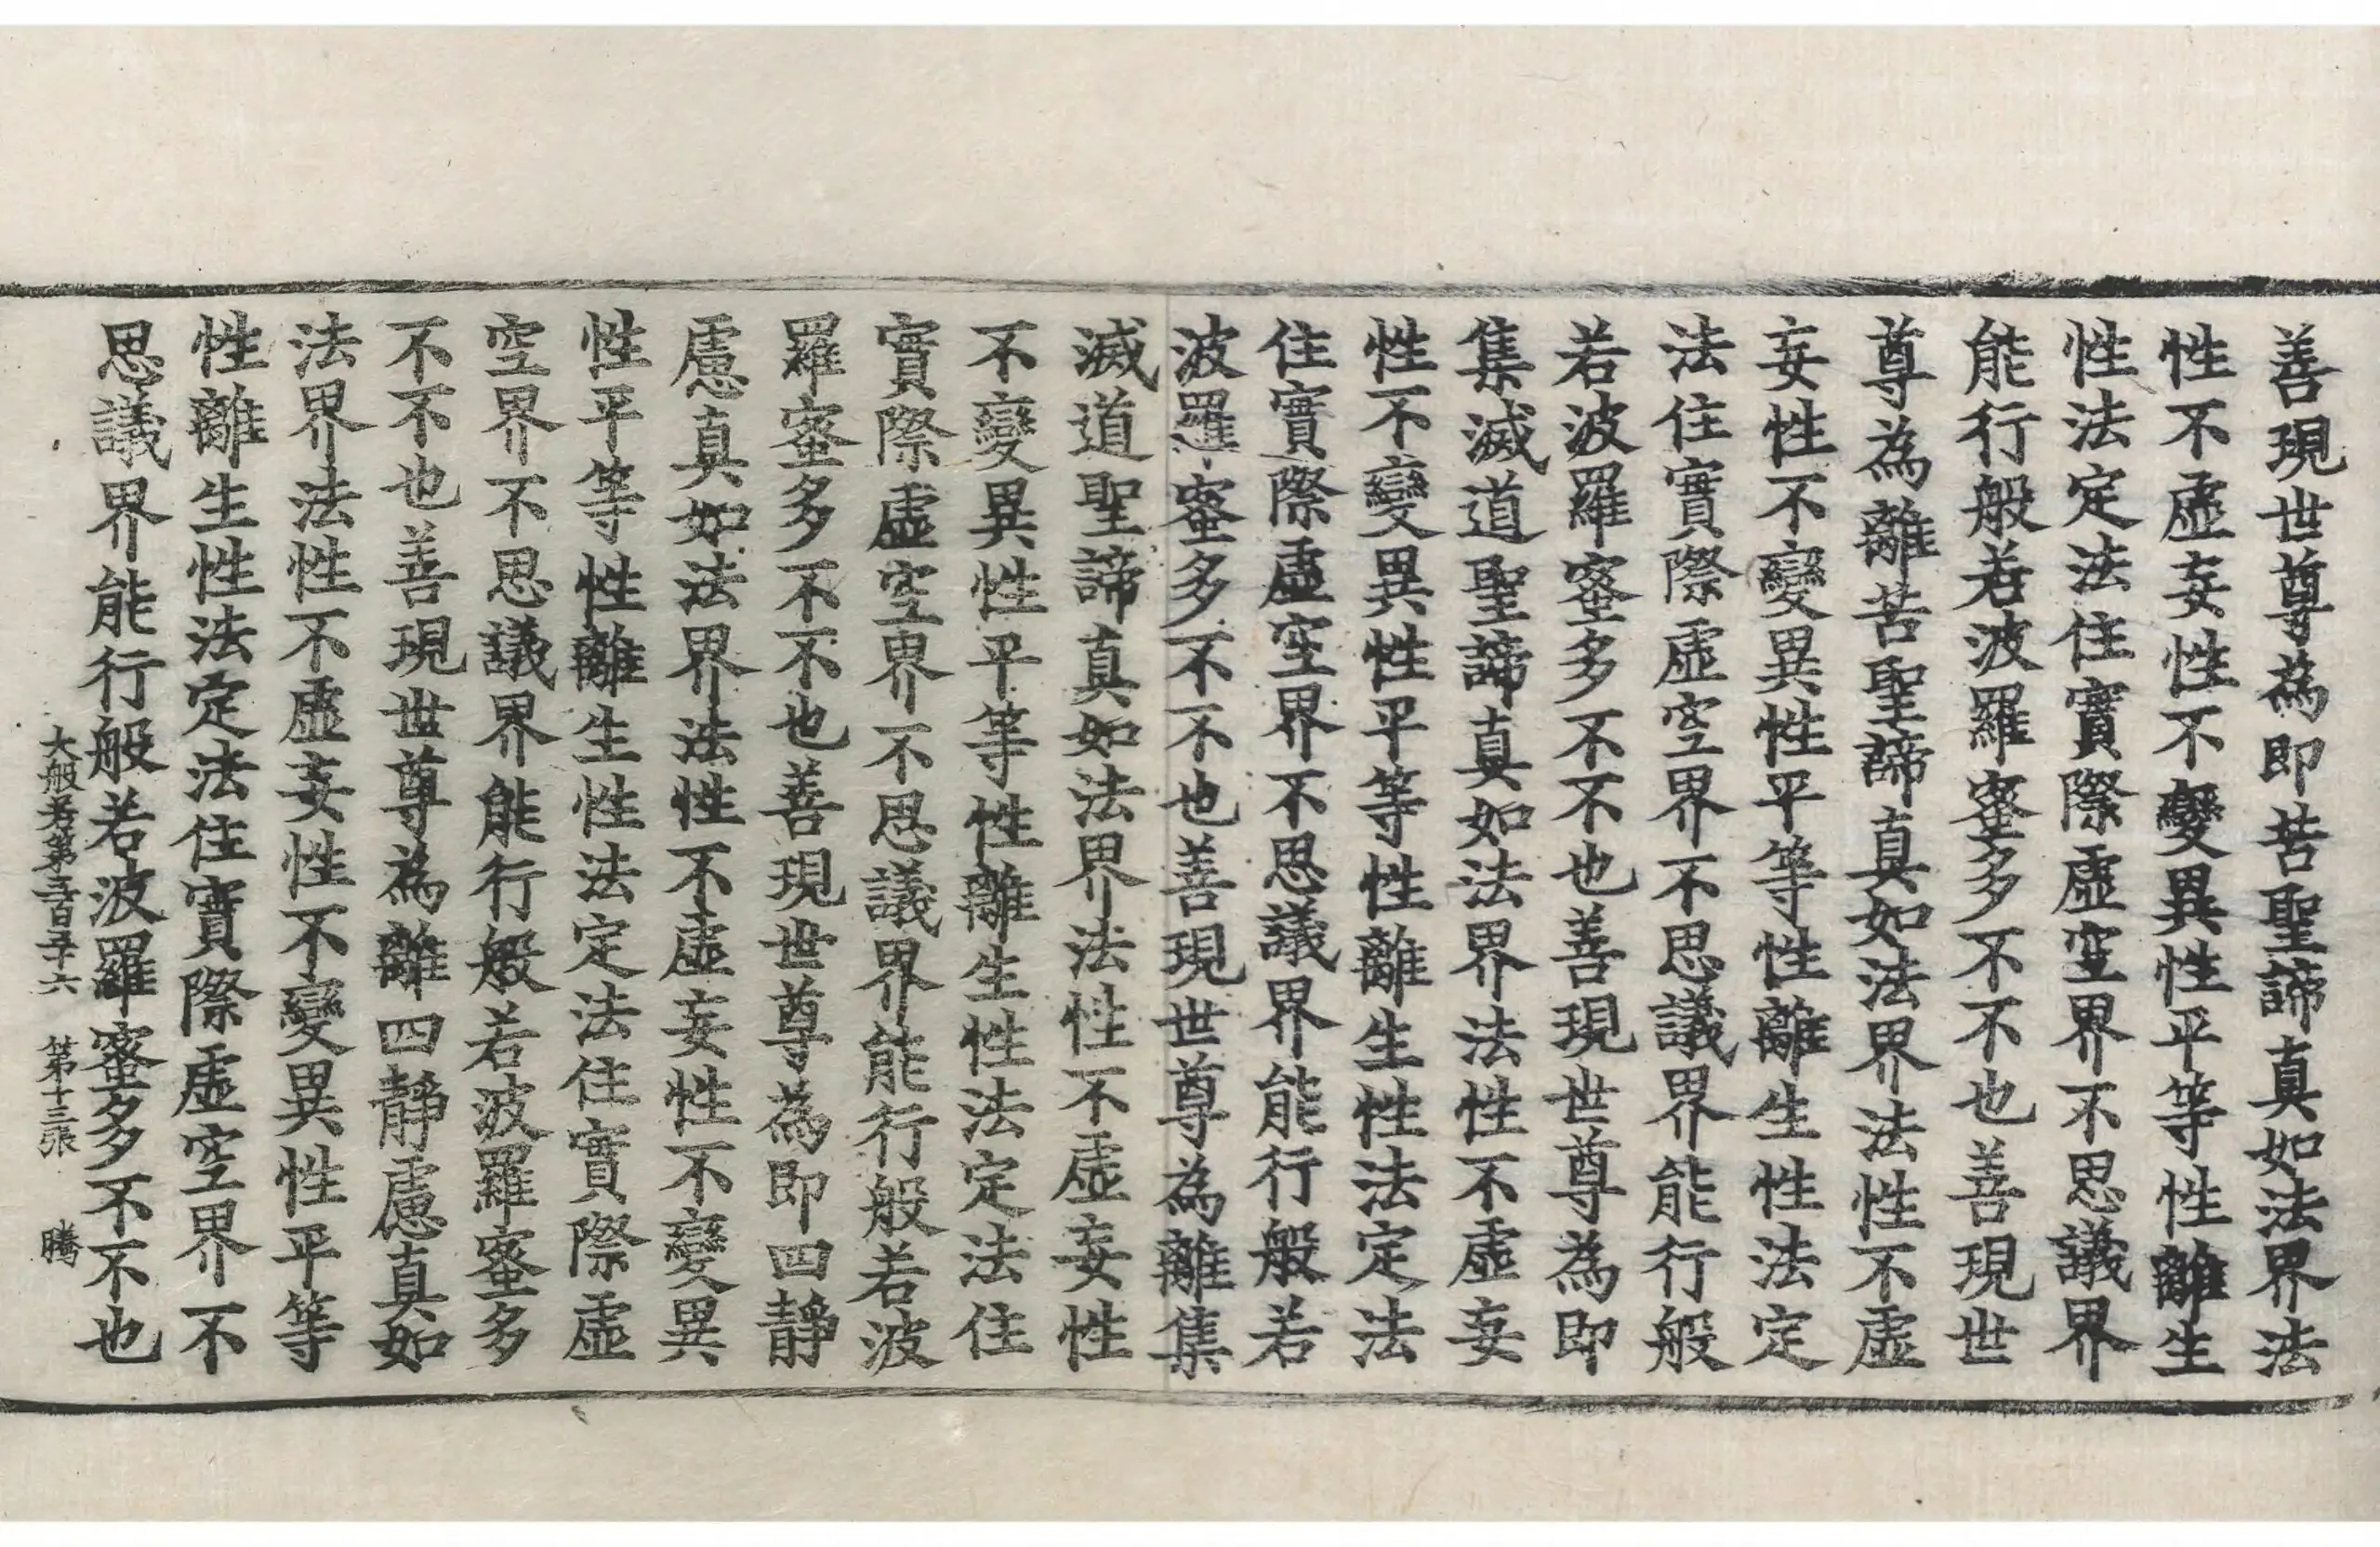 善現世尊為即苦聖諦真如法界法
性不虛妄性不變異性平等性離生
性法定法住實際虛空界不思議界
能行般若波羅蜜多不不也善現世
尊為離苦聖諦真如法界法性不虛
妄性不變異性平等性離生性法定
法住實際虛空界不思議界能行般
若波羅蜜多不不也善現世尊為即
集滅道聖諦真如法界法性不虛妄
性不變異性平等性離生性法定法
住實際虛空界不思議界能行般若
波羅蜜多不不也善現世尊為離集
滅道聖諦真如法界法性不虛妄性
不變異性平等性離生性法定法住
實際虛空界不思議界能行般若波
羅蜜多不不也善現世尊為即四靜
慮真如法界法性不虛妄性不變異
性平等性離生性法定法住實際虛
空界不思議界能行般若波羅蜜多
不不也善現世尊為離四靜慮真如
法界法性不虛妄性不變異性平等
性離生性法定法住實際虛空界不
思議界能行般若波羅蜜多不不也
大般若第五百五十六 第十三張 騰